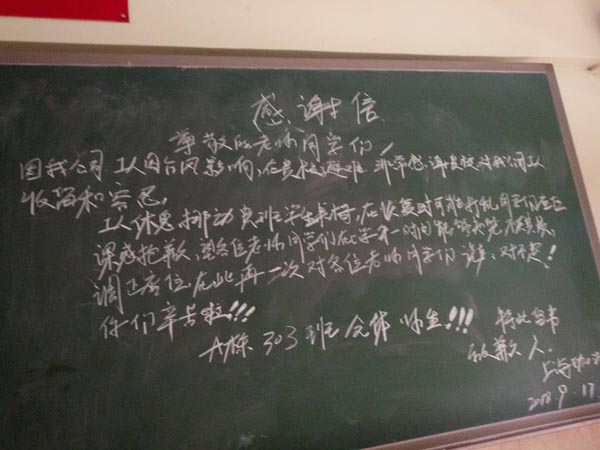 感谢信
尊敬的老师同学们
因我公司工人因台风影响,在贵校避难,非常感谢贵校对我公司工人
收留和容忍,
工人休息挪动贵班学生桌椅,在恢复时可能打乱同学们座位
深感抱歉,望各位老师同学们在学
调正座位,在此再一次对各位老师同学们说声:对不起!
你们辛苦啦!!!
A栋303班全体师生!!! 特此留书
致歉人.
上海
2018.9.17